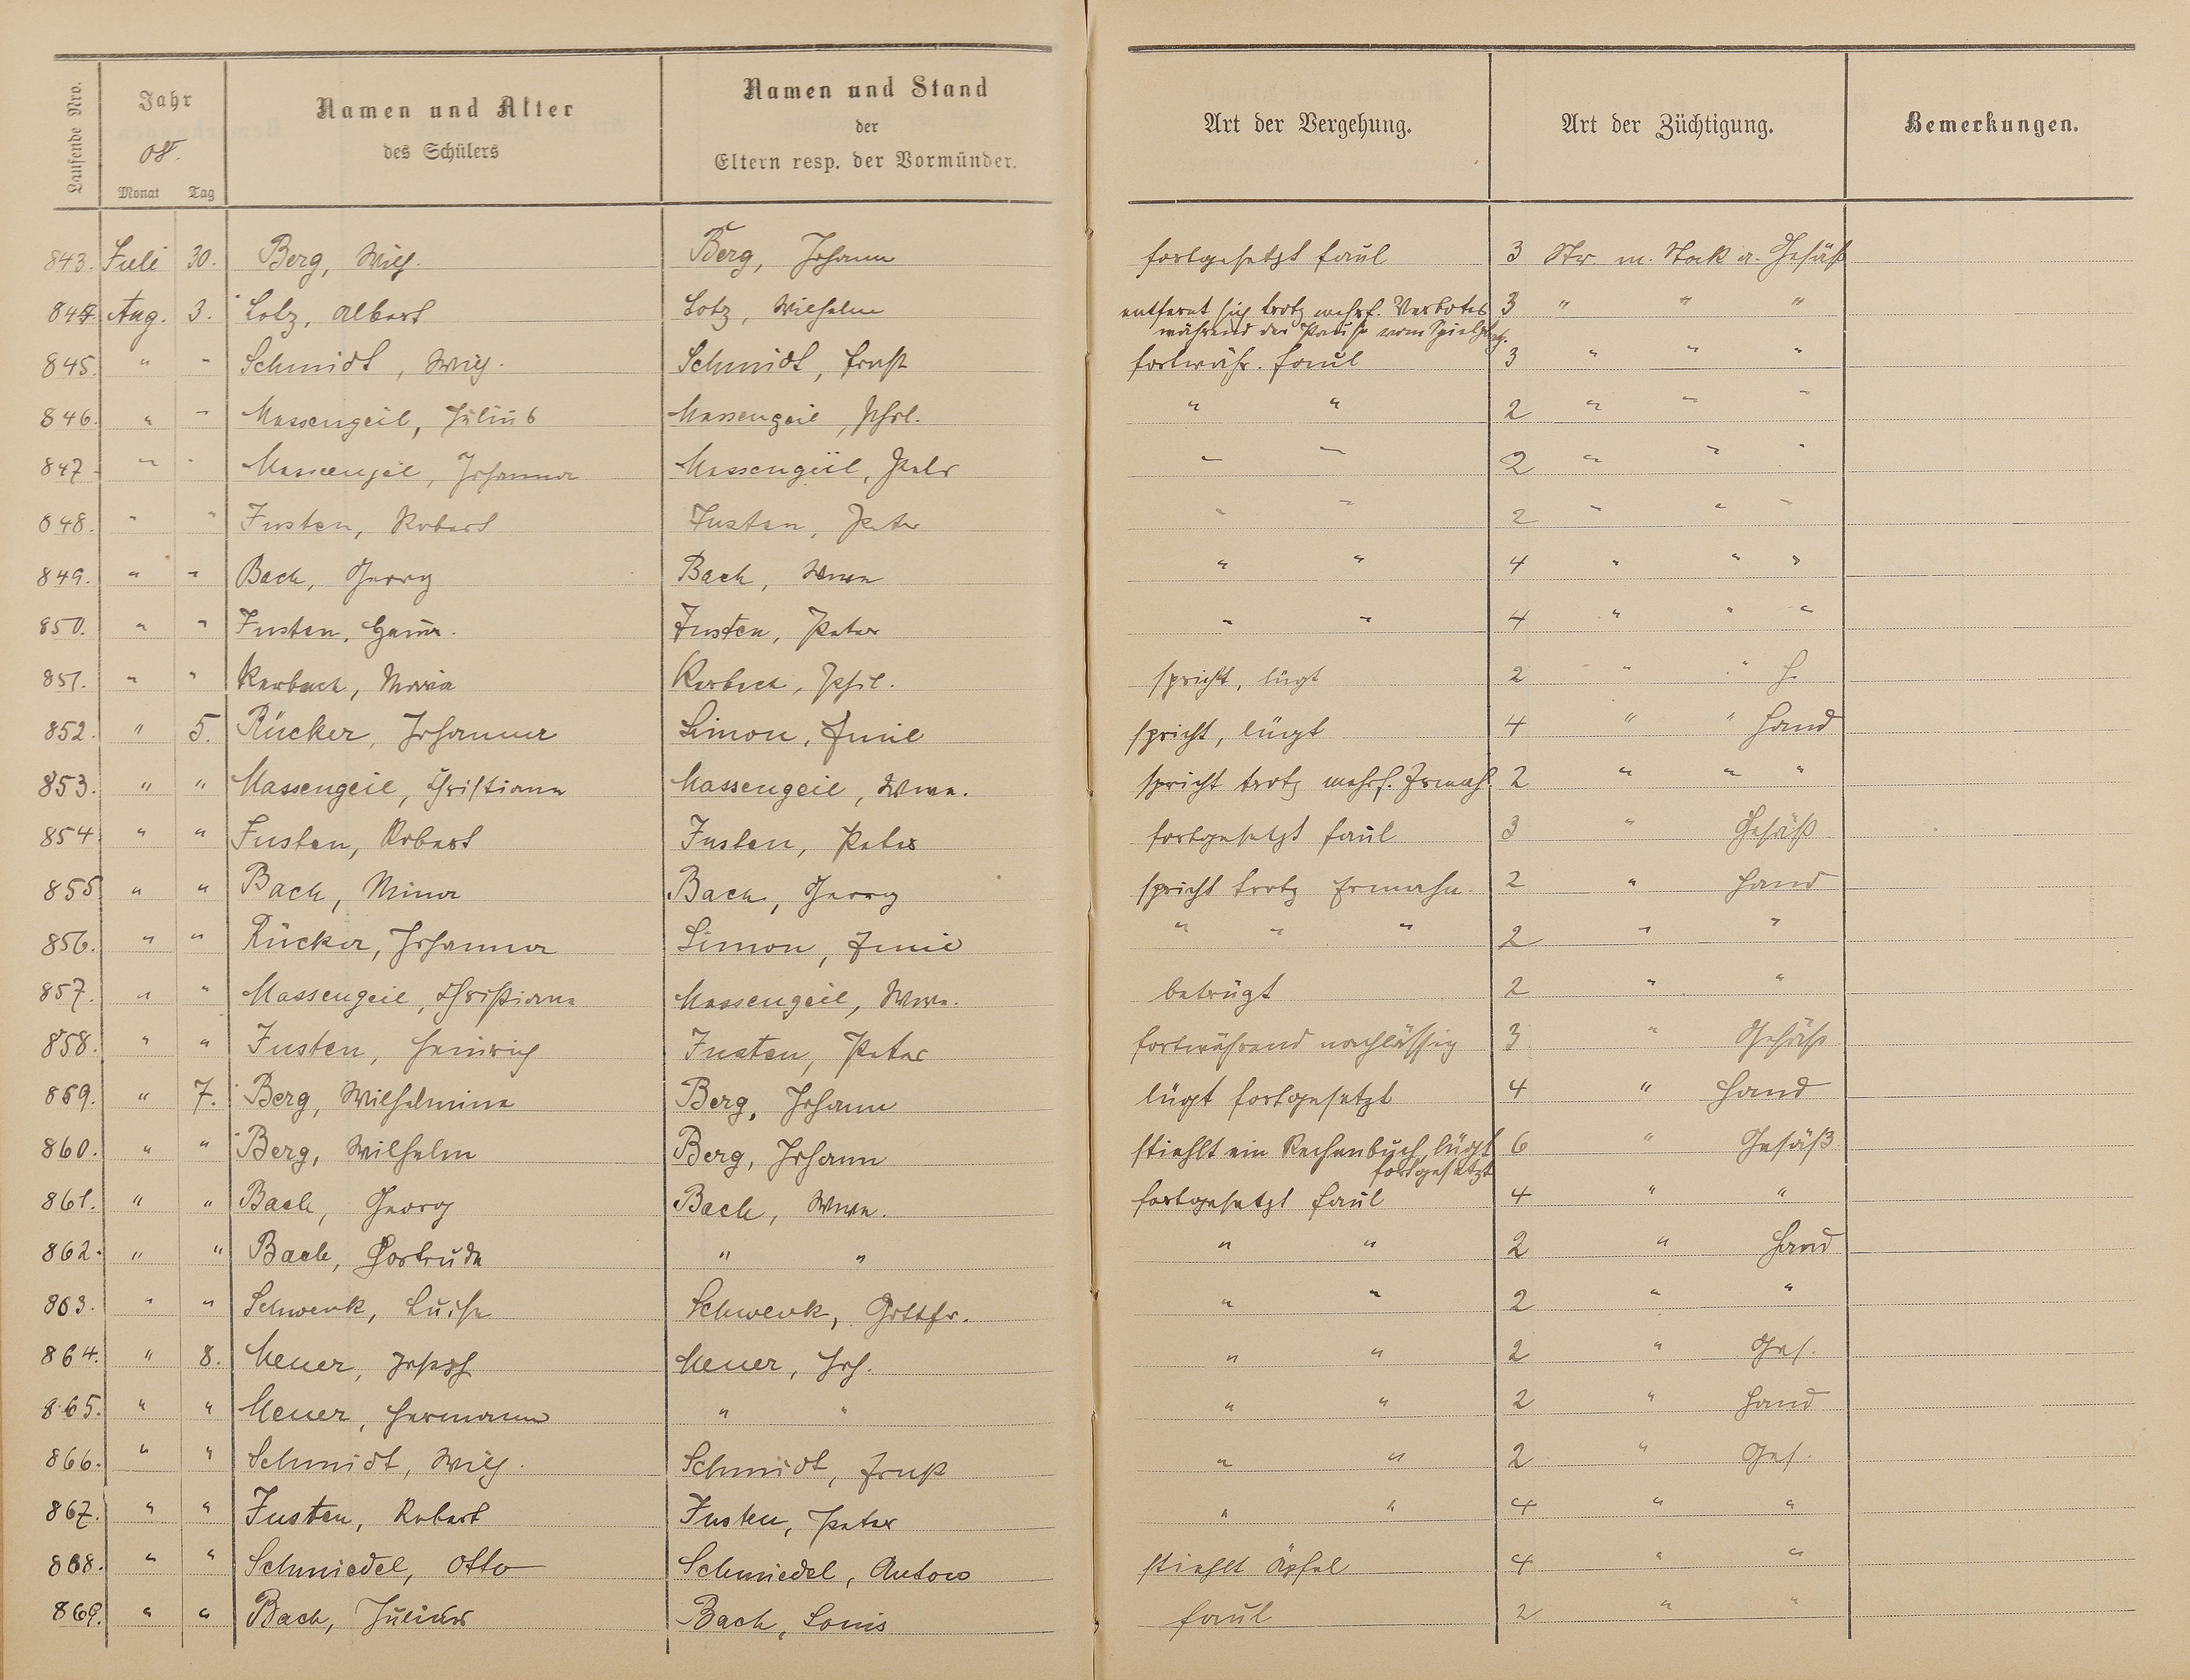 Laufende Nro.
Jahr
08.
Monat Tag
Namen und Alter
des Schülers
Namen und Stand
der
Eltern resp. der Vormünder.
Art der Vergehung.
Art der Züchtigung.
Bemerkungen.
843. Juli 30. Berg, Wilh. Berg, Johann fortgesetzt faul 3 Str m. Stock a. Gesäß
844. Aug. 3. Lotz, Albert Lotz, Wilhelm entfernt sich trotz mehrf. Verbotes 3 " " "
während der Pause vom Spielplatz.
845. " " Schmidt, Wilh. Schmidt, Ernst fortwähr. faul 3 " " "
846. " " Massengeil, Julius Massengeil, Phil. " " 2 " " "
847. " " Massengeil, Johanna Massengeil, Peter " " 2 " " "
848. " " Fusten, Robert Fusten, Peter " " 2 " " "
849. " " Bach, Georg Bach, Wwe " " 4 " " "
850. " " Fusten, Heinr. Fusten, Peter " " 4 " " "
851. " " Karbach, Maria Karbach, Phil. spricht, lügt 2 " " H.
852. " 5. Rücker, Johanna Simon, Emil spricht, lügt 4 " " Hand
853. " " Massengeil, Christiana Massengeil, Wwe. spricht trotz mehrf. Ermah. 2 " " "
854 " " Fusten, Robert Fusten, Peter fortgesetzt faul 3 " Gesäß
855 " " Bach, Mina Bach, Georg spricht trotz Ermahn. 2 " Hand
856. " " Rücker, Johanna Simon, Emil " " " 2 " "
857. " " Massengeil, Christiana Massengeil, Wwe. betrügt 2 " "
858. " " Fusten, Heinrich Fusten, Peter fortwährend nachlässig 3 " Gesäß
859. " 7. Berg, Wilhelmine Berg, Johann lügt fortgesetzt 4 " Hand
860. " " Berg, Wilhelm Berg, Johann stiehlt ein Rechenbuch, lügt 6 " Gesäß
fortgesetzt
861. " " Bach, Georg Bach, Wwe. fortgesetzt faul 4 " "
862. " " Bach, Gertrude " " " " 2 " Hand
863. " " Schwenk, Luise Schwenk, Gottfr. " " 2 " "
864. " 8. Meuer, Joseph Meuer, Joh. " " 2 " Ges.
865. " " Meuer, Hermann " " " " 2 " Hand
866. " " Schmidt, Wilh. Schmidt, Ernst " " 2 " Ges.
867. " " Fusten, Robert Fusten, Peter " " 4 " "
868. " " Schmiedel, Otto Schmiedel, Anton stiehlt Äpfel 4 " "
869. " " Bach, Julius Bach, Louis faul 2 " "